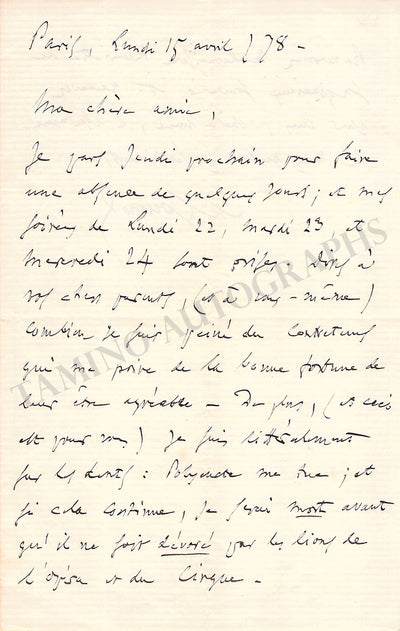 Paris, Lundi 15 avril /78 -
Ma chère amie,
Je pars Jeudi prochain pour faire
une absence de quelques jours; et mes
soirées de Lundi 22, mardi 23, et
mercredi 24 sont prises. dites à
vos chers parents, (et à vous-même)
combien je suis peiné du contretems
qui me prive de la bonne fortune de
leur être agréable - De plus, (et ceci
est pour vous) je suis littéralement
sur les dents: Polyeucte me tue; et
si cela continue, je serai mort avant
qu'il ne soit dévoré par les lions de
l'opéra et du Cirque -
TAMINO AUTOGRAPHS